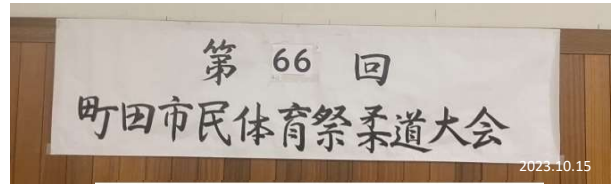 第 66 回
町田市民体育祭柔道大会
2023.10.15